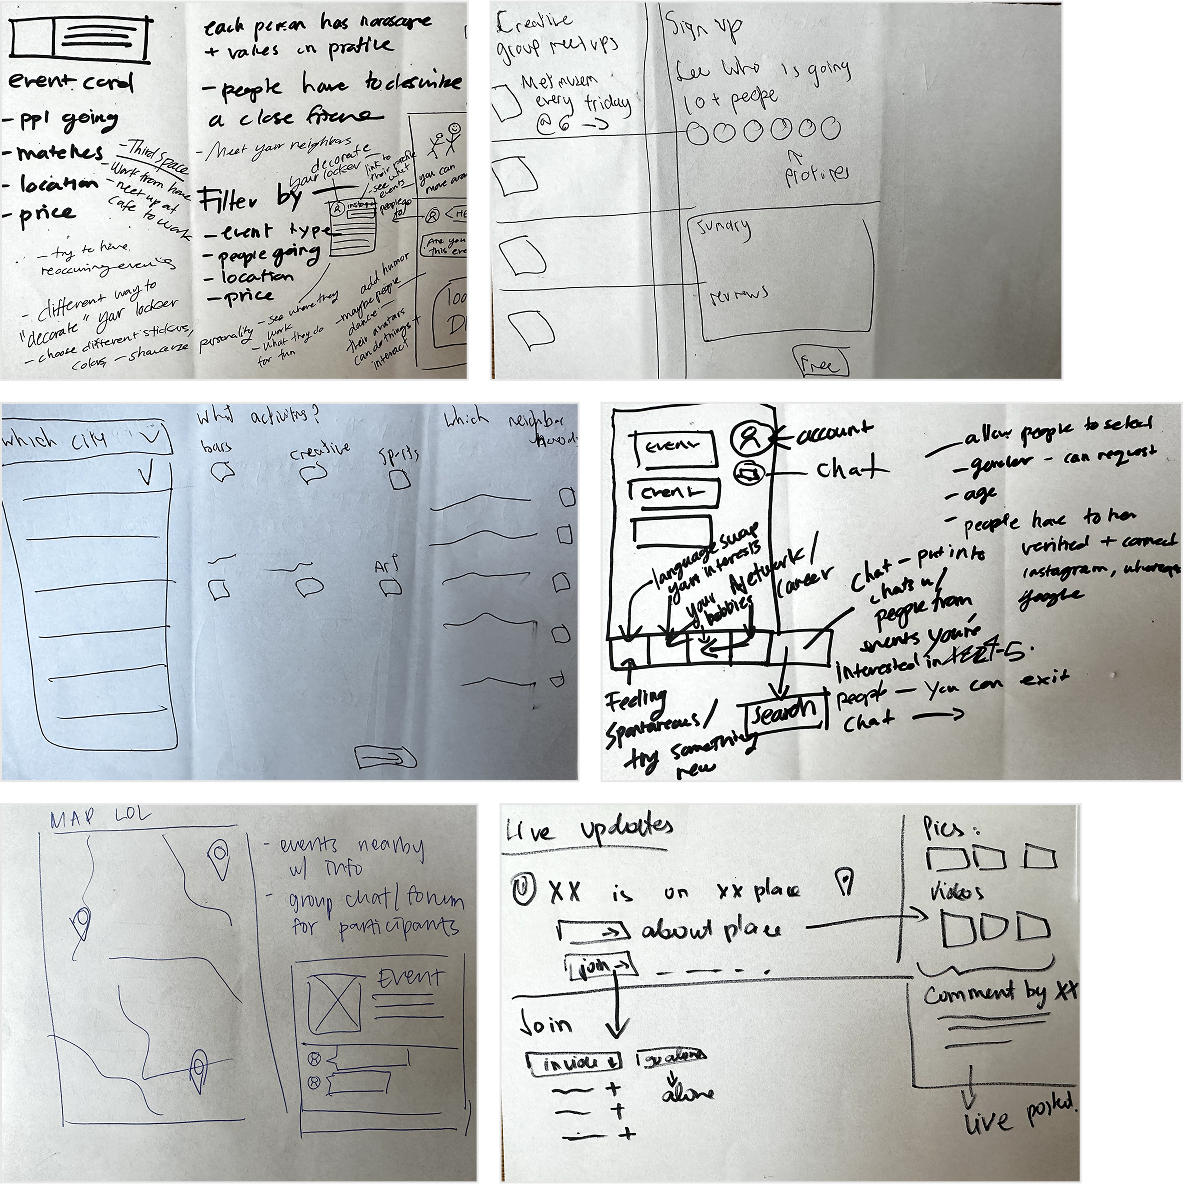 event card
- ppl going
- matches
- location
- price
- Third Space
- Work from home
- meet up at
cafe to work
- try to have
reoccuring events
- different way to
"decorate" your locker
- choose different stickers,
colors - showcase personality
each person has
+ values in
- people have to describe
a close friend
- Meet your neighbors
decorate
your locker
link to
their profile
- see what
events
people go
to
Filter by
- event type
- people going
- location
- price
- see where they
work
- what they do
for fun
add humor
- maybe people
dance
their avatars
can do things +
interact
you can
Are you
this eve
Creative
group meetups
Met musem
every friday
@6 →
Sign up
See Who is going
10+ people
pictures
reviews
Free
which city
What activities?
bars
creative
sports
Art
Which neighbor
hood
event
event
account
chat
language swap
your interests
your
hobbies
Network /
career
Feeling
spontaneous /
try something
new
Search
Chat - put into
chats w/
people from
events you're
interested in 4-5
people - You can exit
chat →
allow people to select
- gender - can request
- age
- people have to be
verified + connect
instagram,
google
MAP LOL
- events nearby
w/ info
- group chat/forum
for participants
Event
Live updates
XX is on xx place
→ about place
join →
Join
invide ↓
go alone
alone
Pics:
Videos
Comment by XX
Live posted.